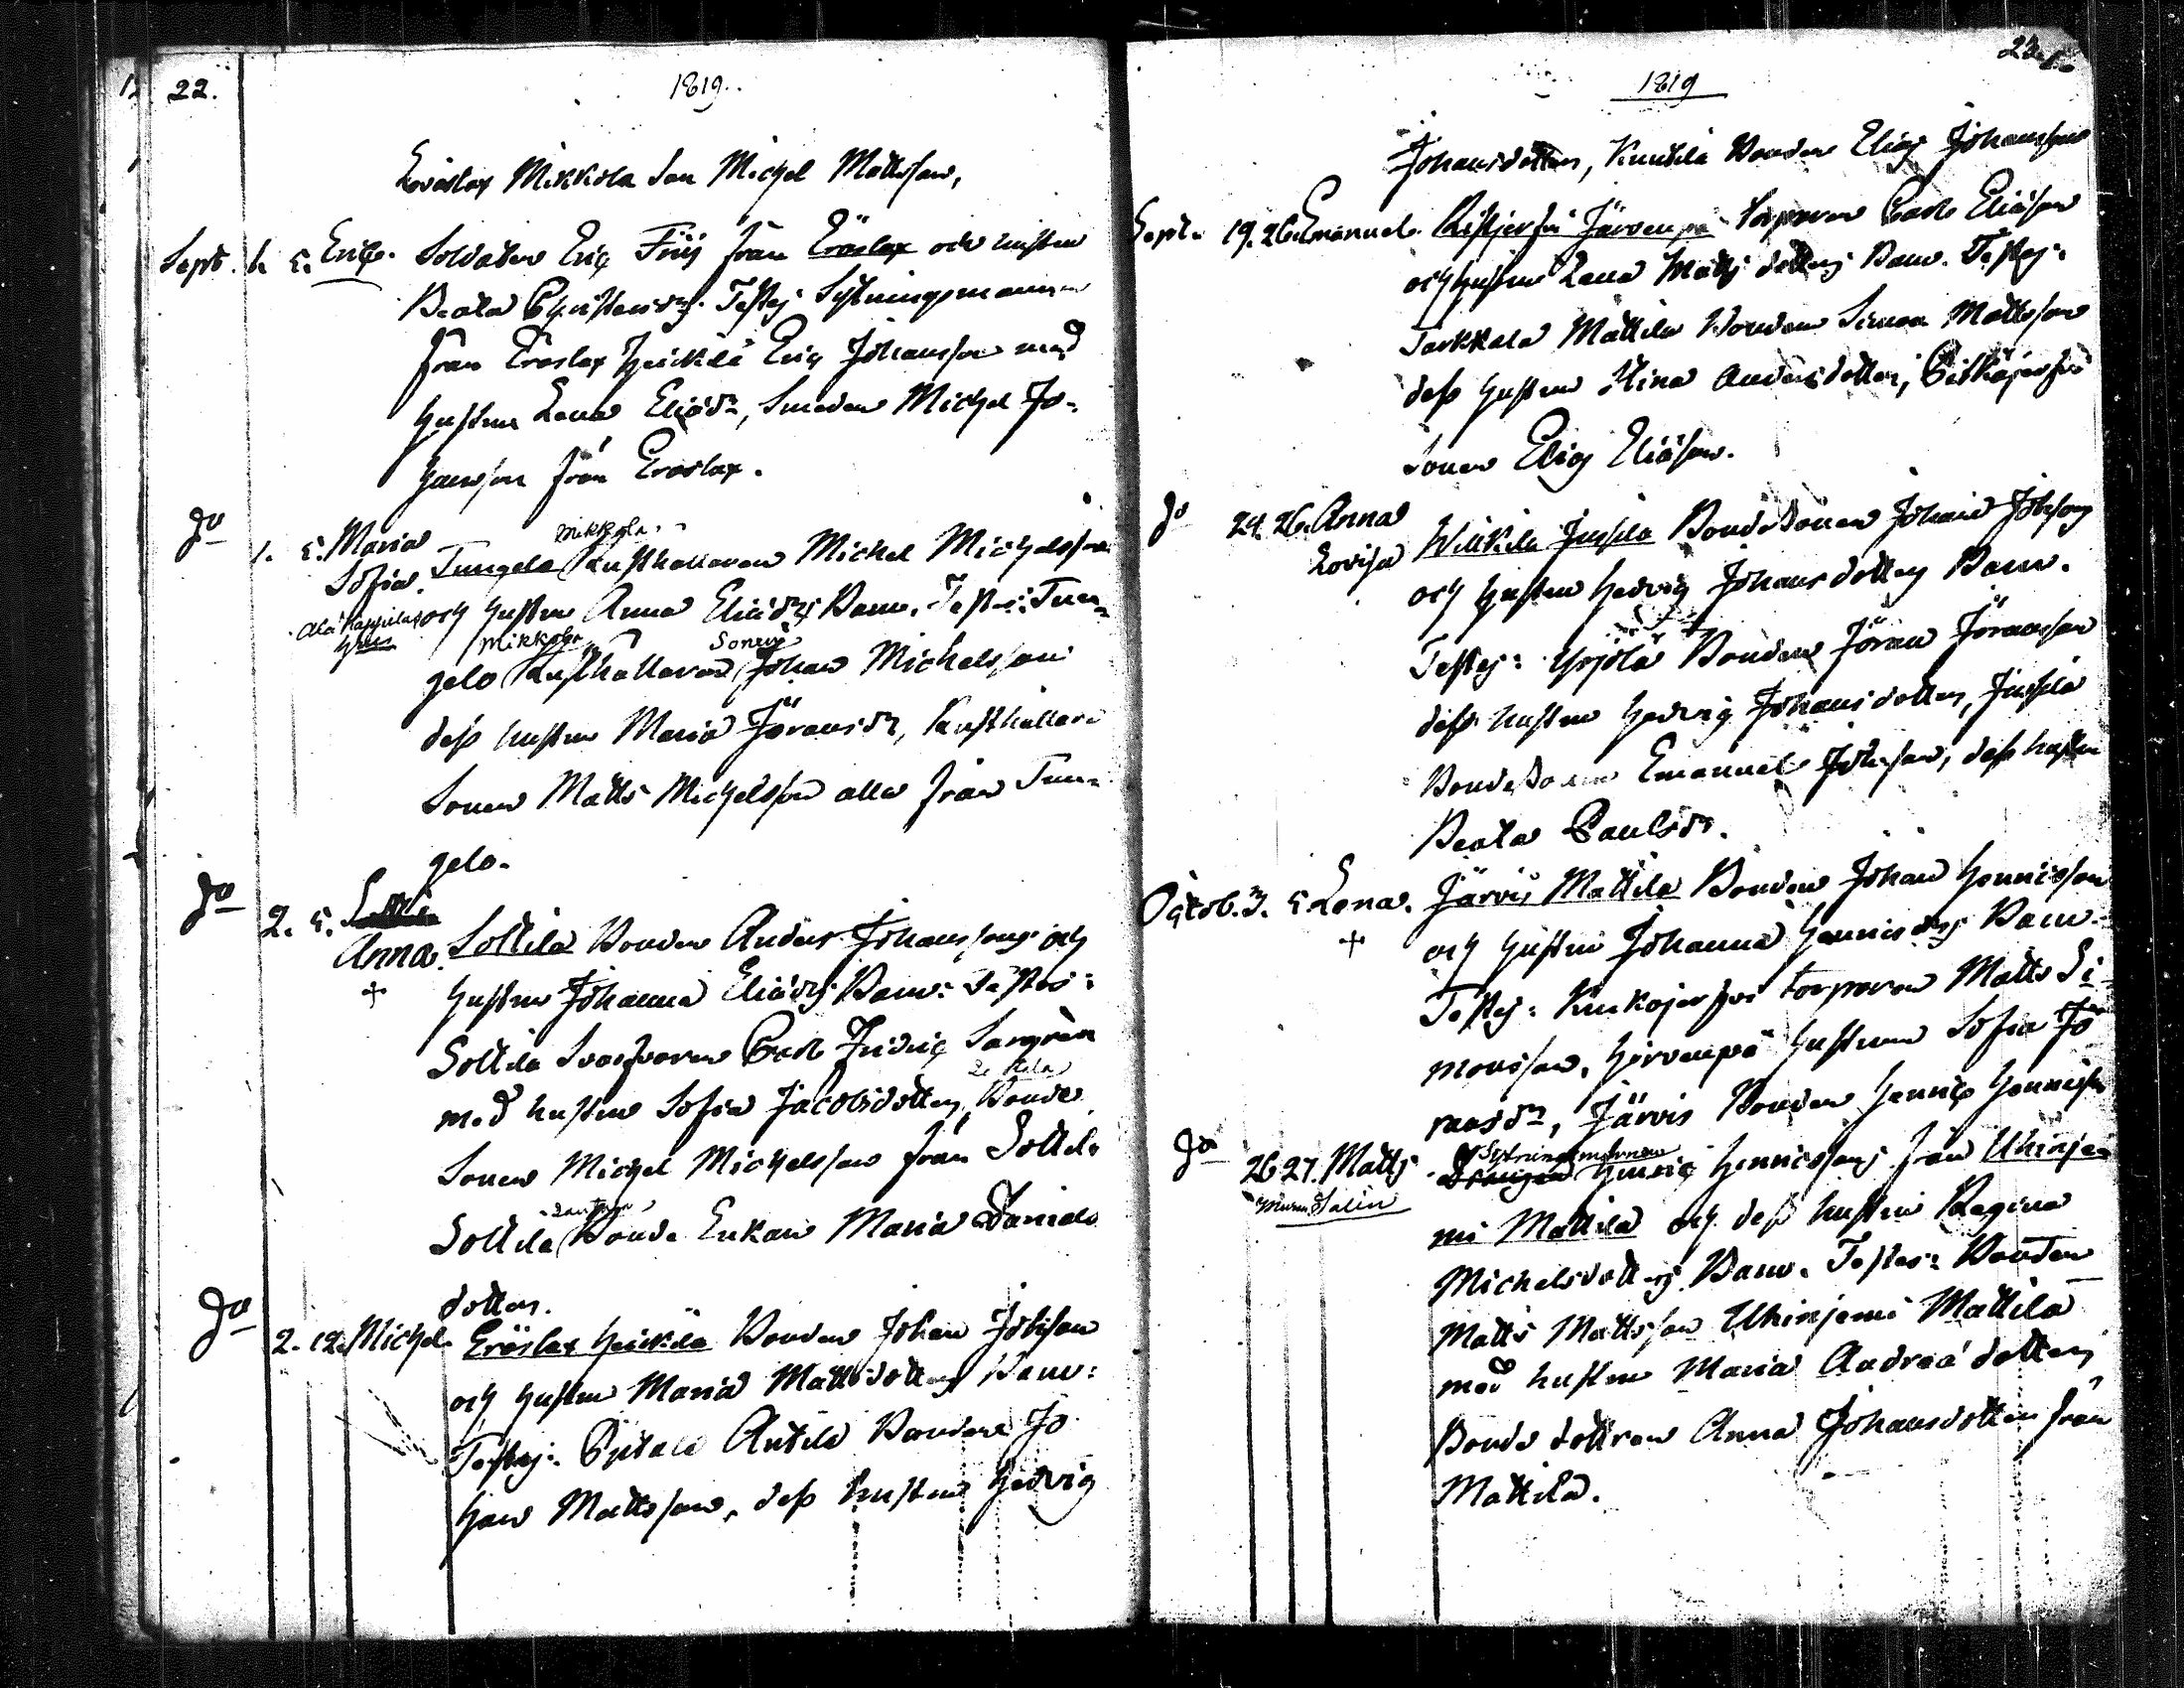 22.
1819.
Eröslax Mikkola Son Michel Mattsson,
Sept. 1. 5. Eric. Soldaten Eric Friij från Eröslax och hustru
Beata Christersdrs. Testes Sextningsmannen
från Eröslax Heickilä Eric Johansson med
hustru Lena Eliædr, Smeden Michel Jo-
hansson från Eröslax.
Do 1. 5. Maria Sofia. Tungelo Mikkola Rusthållaren Michel Michelssons
Ala Kappeli
och hustru Anna Eliædrs Barn. Testes: Tun-
gelo Mikkola Rusthållaren Sonen Johan Michelsson
dess hustru Maria Jöransdr, Rusthållare
Sonen Matts Michelsson alla från Tun-
gelo.
Do 2. 5. Anna. Sottila Bonden Anders Johanssons och
+
hustru Johanna Eliædrs Barn. Testes:
Sottila Svarfvaren Carl Fridric
med hustru Sofia Jacobsdotter, Bonde
Sonen Michel Michelsson från Sottila
Sottila Bonde Enkan Maria Daniels
dotter.
Do 2. 12. Michel. Eröslax Heickilä Bonden Johan Johsson
och hustru Maria Mattsdotters Barn:
Testes: Antila Bonden Jo
han Mattsson, dess hustru Hedvig
23.
1819
Johansdotter, Knutila Bonden Elias Johansson
Sept. 19. 26. Emanuel. Järvenpä Torparen Carl Eliæson
och hustru Lena Matts dotters Barn. Testes:
Tarkkala Mattila Bonden Simon Mattsson
dess hustru Stina Andersdotter, Pitkäjerfvi
Sonen Elias Eliæson.
Do 24. 26. Anna Lovisa Willkila Jussila BondeSonen Johan Johssons
och hustru Hedvig Johansdotters Barn.
Testes: Bonden Jöran Jöransson
dess hustru Hedvig Johansdotter, Jussila
BondeSonen Emanuel Johsson, dess hustru
Beata Paulsdr.
Octob. 3. 5. Lena. Järvis Mattila Bonden Johan Hennicsson
+
och hustru Johanna Hennicsdrs Barn.
Testes: Kuckojerfvi torparen Matts Si-
monsson, Hirvenpä hustrun Sofia Jö
ransdr, Järvis Bonden Henric Hennicsson
Do 26 27. Matts Sextningsmannen Henric Hennicssons från Uhinje-
Salin
mi Mattila och dess hustru Regina
Michelsdotters Barn. Testes: Bonden
Matts Mattsson Uhinjemi Mattila
med hustru Maria Andreædotter,
Bonde dottren Anna Johansdotter från
Mattila.